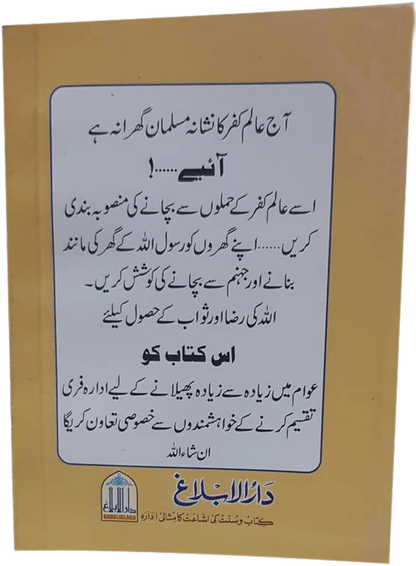 آج عالم کفر کا نشانہ مسلمان گھرانہ ہے
آئیے......!
اسے عالم کفر کے حملوں سے بچانے کی منصوبہ بندی
کریں......اپنے گھروں کو رسول اللہ کے گھر کی مانند
بنانے اور جہنم سے بچانے کی کوشش کریں۔
اللہ کی رضا اور ثواب کے حصول کیلئے
اس کتاب کو
عوام میں زیادہ سے زیادہ پھیلانے کے لیے ادارہ فری
تقسیم کرنے کے خواہشمندوں سے خصوصی تعاون کریگا
ان شاء اللہ
دَارُالابلاغ
کتاب و سنت کی اشاعت کا مثالی ادارہ
دارالابلاغ
DARULIBLAGH